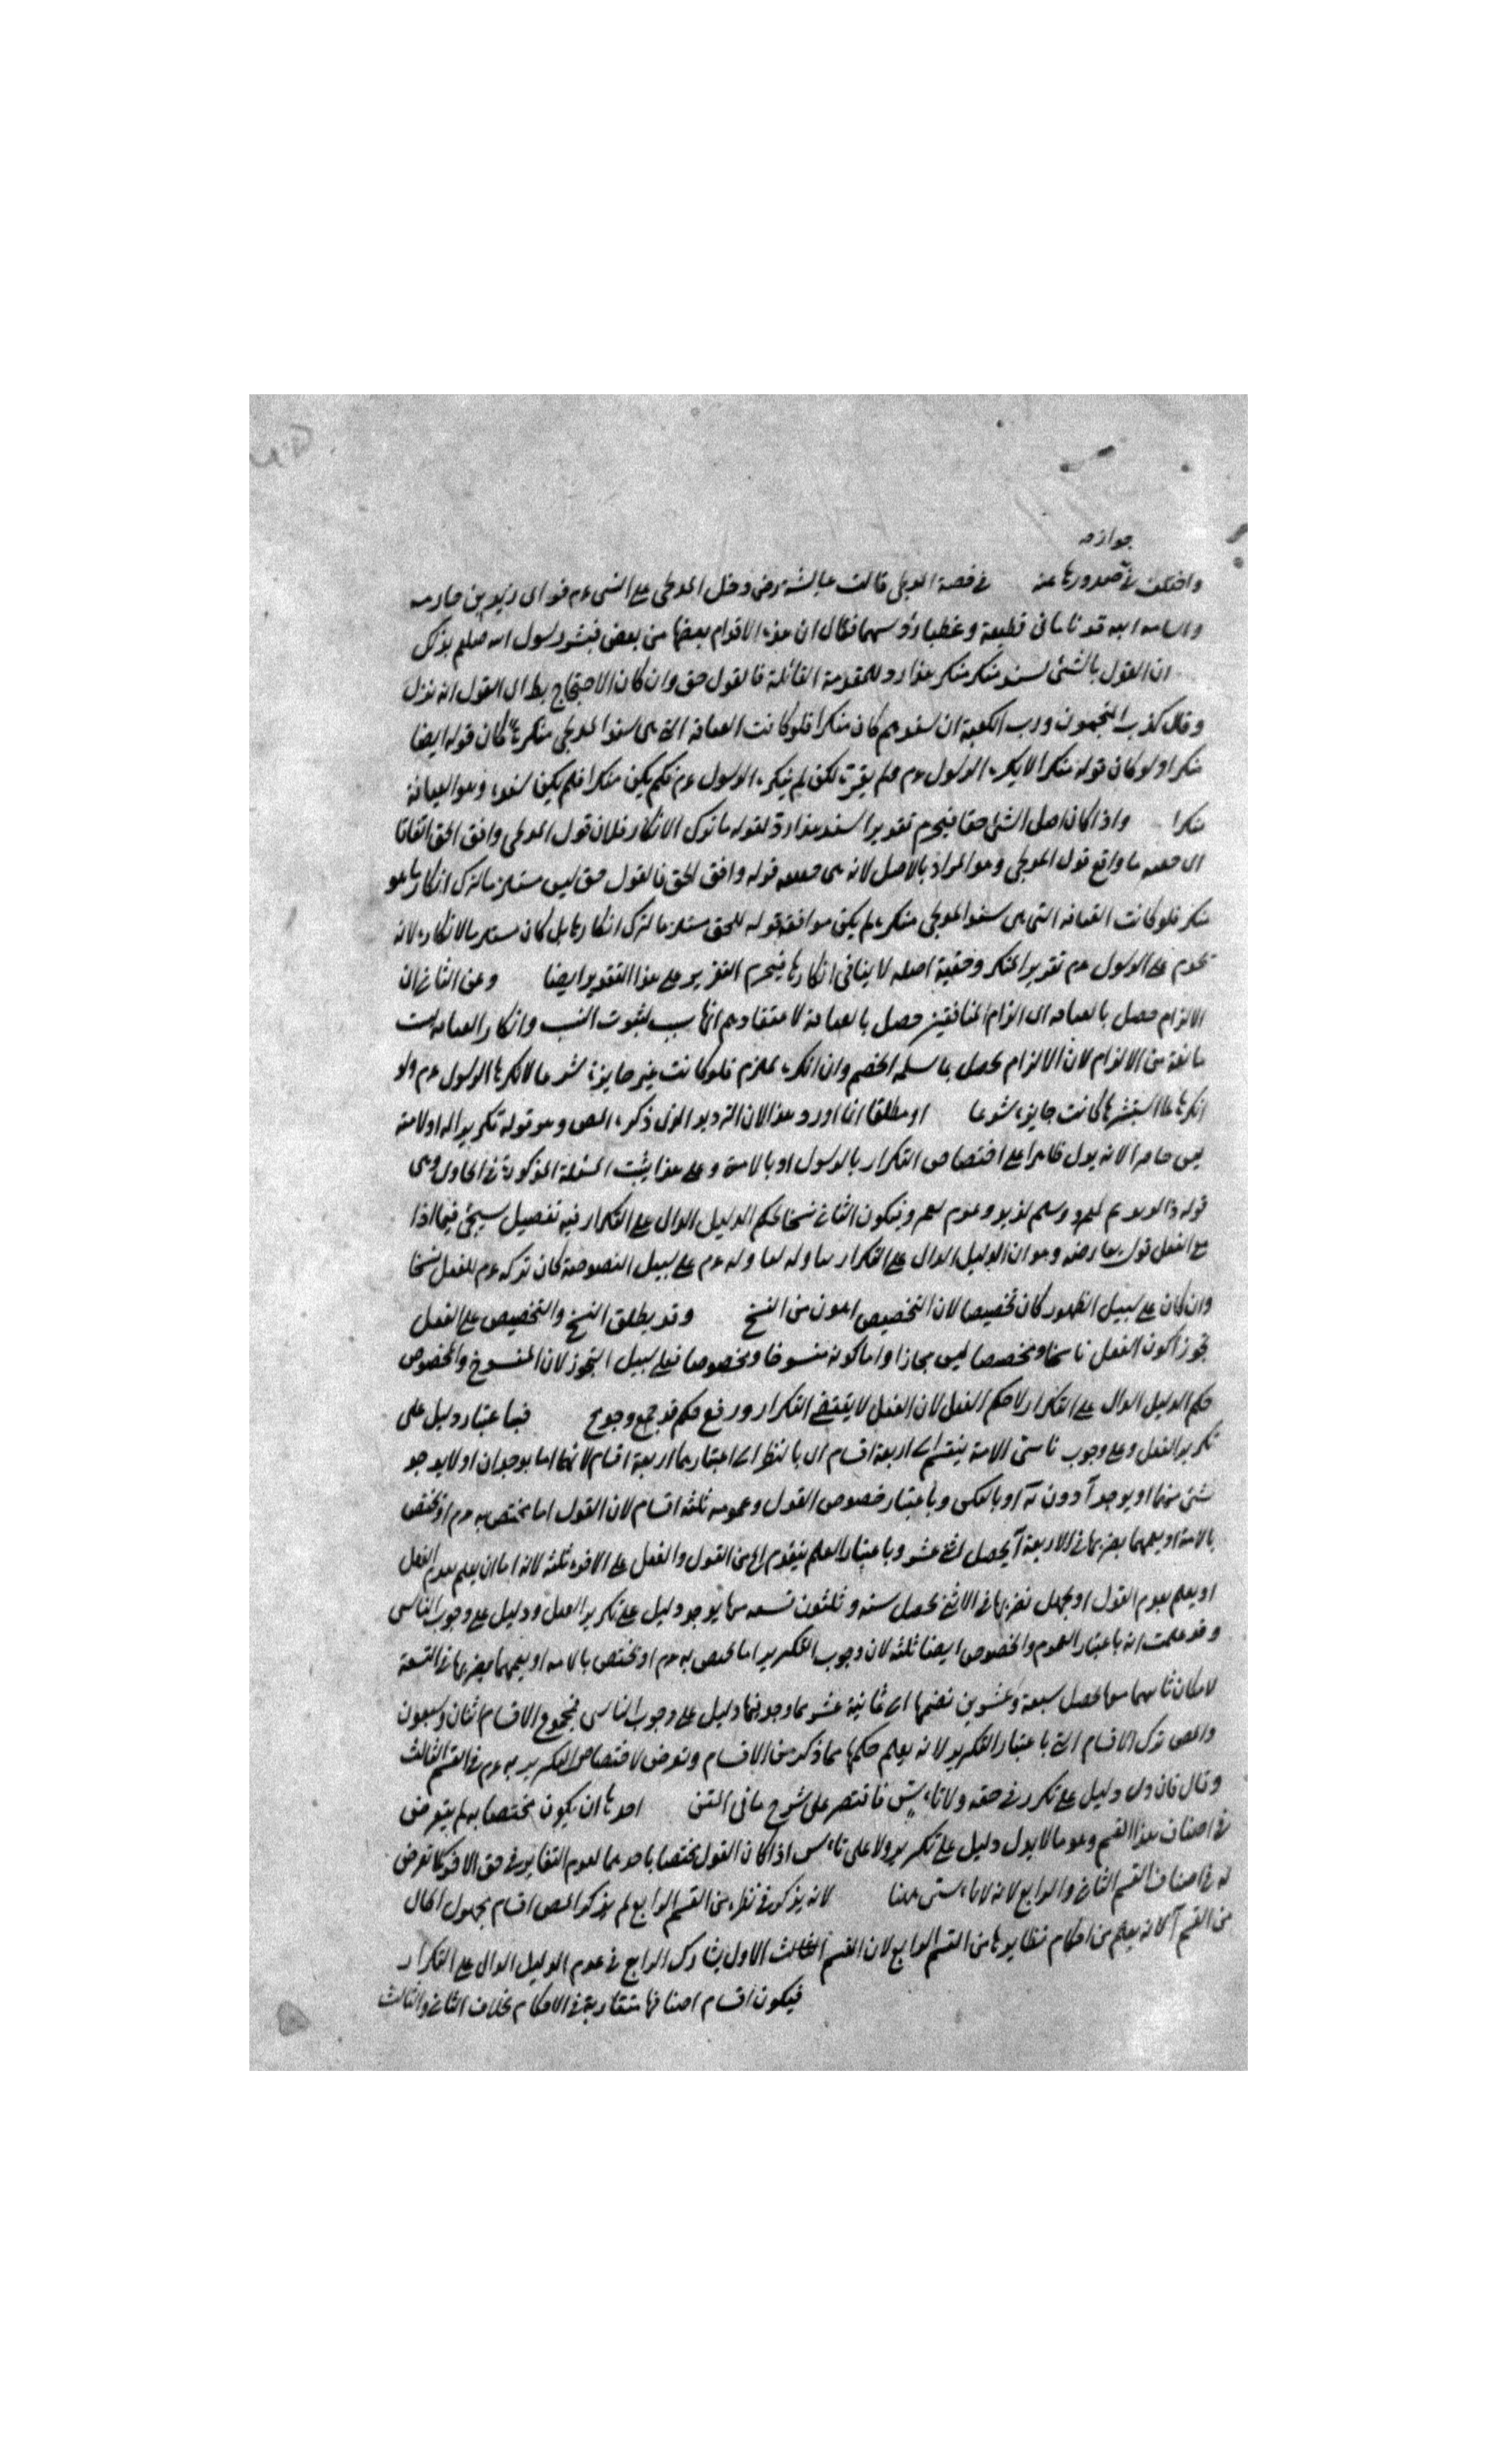 جوازه
واختلف في صدورها عنه في قصة المدلجي قالت عايشة رض دخل المدلجي على النبي عم فراى زيد بن حارثه
واسامه ابنه قد ناما في قطيفة وغطيا رؤسهما فقال ان هذه الاقدام بعضها من بعض فبشر رسول الله صلعم بذلك
ان القول بالشئ لسند منكر منكر هذا رد للمقدمة القائلة فالقول حق وان كان الاحتجاج
وقال كذب المنجمون ورب الكعبة ان سندهم كان منكرا فلو كانت القيافة التي هي سند المدلجي منكرة لكان قوله ايضا
منكرا ولو كان قوله منكرا لانكره الرسول عم ولم يقرره لكن لم ينكره الرسول عم فلم يكن منكرا فلم يكن سنده وهو القيافة
منكرا واذا كان اصل الشئ حقا فيحرم تقدير السند هذا رد لقوله ما ترك الانكار فلان قول المدلجي وافق الحق اتفاقا
اي ما واقع قول المدلجي وهو المراد بالاصل لانه هي قوله وافق الحق فالقول حق ليس مستلزما لترك انكار ما هو
منكر فلو كانت القيافه التي هي سند المدلجي منكرة لم يكن موافقة قوله للحق مستلزما لترك انكارها بل كان مستلزما لانكاره لانه
يحرم على الرسول عم تقرير المنكر وحقية اصله لا ينافي انكارها فيحرم التقرير على هذا التقدير ايضا وعن الثاني ان
الالزام حصل بالقيافه اي الزام المنافقين حصل بالقيافة لاعتقادهم انها سبب لثبوت النسب وانكار القيافه ليست
مانعة من الالزام لان الالزام يحصل بما سلمه الخصم وان انكره الملزم فلو كانت غير جايزة شرعا لانكرها الرسول عم ولو
انكرها لما استبشر بها كانت جايزة شرعا او مطلقا انما اورد هذا لان الترديد الذي ذكره المص وهو قوله تكرير اله او لامته
ليس حاصرا لانه يدل ظاهرا على اختصاص التكرار بالرسول او بالامة وعلى هذا يثبت المسئلة المذكورة في
ويكون الثاني نسخا لحكم الدليل الدال على التكرار فيه تفصيل سيجئ فيما اذا
مع الفعل قول يعارضه وهو ان الدليل الدال على التكرار على سبيل النصوصية كان تركه عم للفعل نسخا
وان كان على سبيل الظهور كان تخصيصا لان التخصيص اهون من النسخ وقد يطلق النسخ والتخصيص على الفعل
تجوزا كون الفعل ناسخا ومخصصا ليس مجازا واما كونه منسوخا ومخصوصا فعلى سبيل التجوز لان المنسوخ والمخصوص
حكم الدليل الدال على التكرار لا حكم الفعل لان الفعل لا يقتضي التكرار ورفع حكم قد فباعتبار دليل على
تكرير الفعل وعلى وجوب تاسي الامة ينقسم الى اربعة اقسام اي بالنظر الى اعتبارهما اربعة اقسام لانهما اما يوجدان او لا يوجد
شئ منهما او يوجد آ دون ب او بالعكس وباعتبار خصوص القول وعمومه ثلثة اقسام لان القول اما يختص به عم او يختص
بالامة او يعمهما بضربها في الاربعة يحصل اثنى عشر وباعتبار العلم بتقدم كل من القول والفعل على الاخر ثلثة لانه اما ان يعلم تقدم الفعل
او يعلم تقدم القول او يجهل نضربها في الاثني يحصل سته وثلثون تسعه منها يوجد دليل على تكرير الفعل ودليل على وجوب التاسي
وقد علمت انه باعتبار العموم والخصوص ايضا ثلثة لان وجوب التكرير اما يختص به عم او يختص بالامه او يعمهما بضربها في التسعة
يحصل سبعة وعشرين نضمها الى ثمانية عشر مما وجد فيها دليل على وجوب التاسي فمجموع الاقسام اثنان وسبعون
والمص ترك الاقسام التي باعتبار التكرير لانه يعلم حكمها مما ذكر من الاقسام وتعرض لاختصاص التكرير به عم في القسم الثالث
وقال فان دل دليل على تكرر في حقه ولا تاسي فاقتصر على شرح ما في المتن احدها ان يكون مختصا به لم يتعرض
في اصناف هذا القسم وهو ما لا يدل دليل على تكرير ولا على تاسي اذا كان القول مختصا باحدهما لعدم التغاير في حق الاخر كما تعرض
له في اصناف القسم الثاني والرابع لانه لا تاسي هنا لانه يذكر في نظيره من القسم الرابع لم يذكر المص اقسام مجهول الحال
من القسم آ لانه يعلم من احكام نظايرها من القسم الرابع لان القسم الاول يشارك الرابع في عدم الدليل الدال على التكرار
فيكون اقسام اصنافها متقاربة في الاحكام بخلاف الثاني والثالث